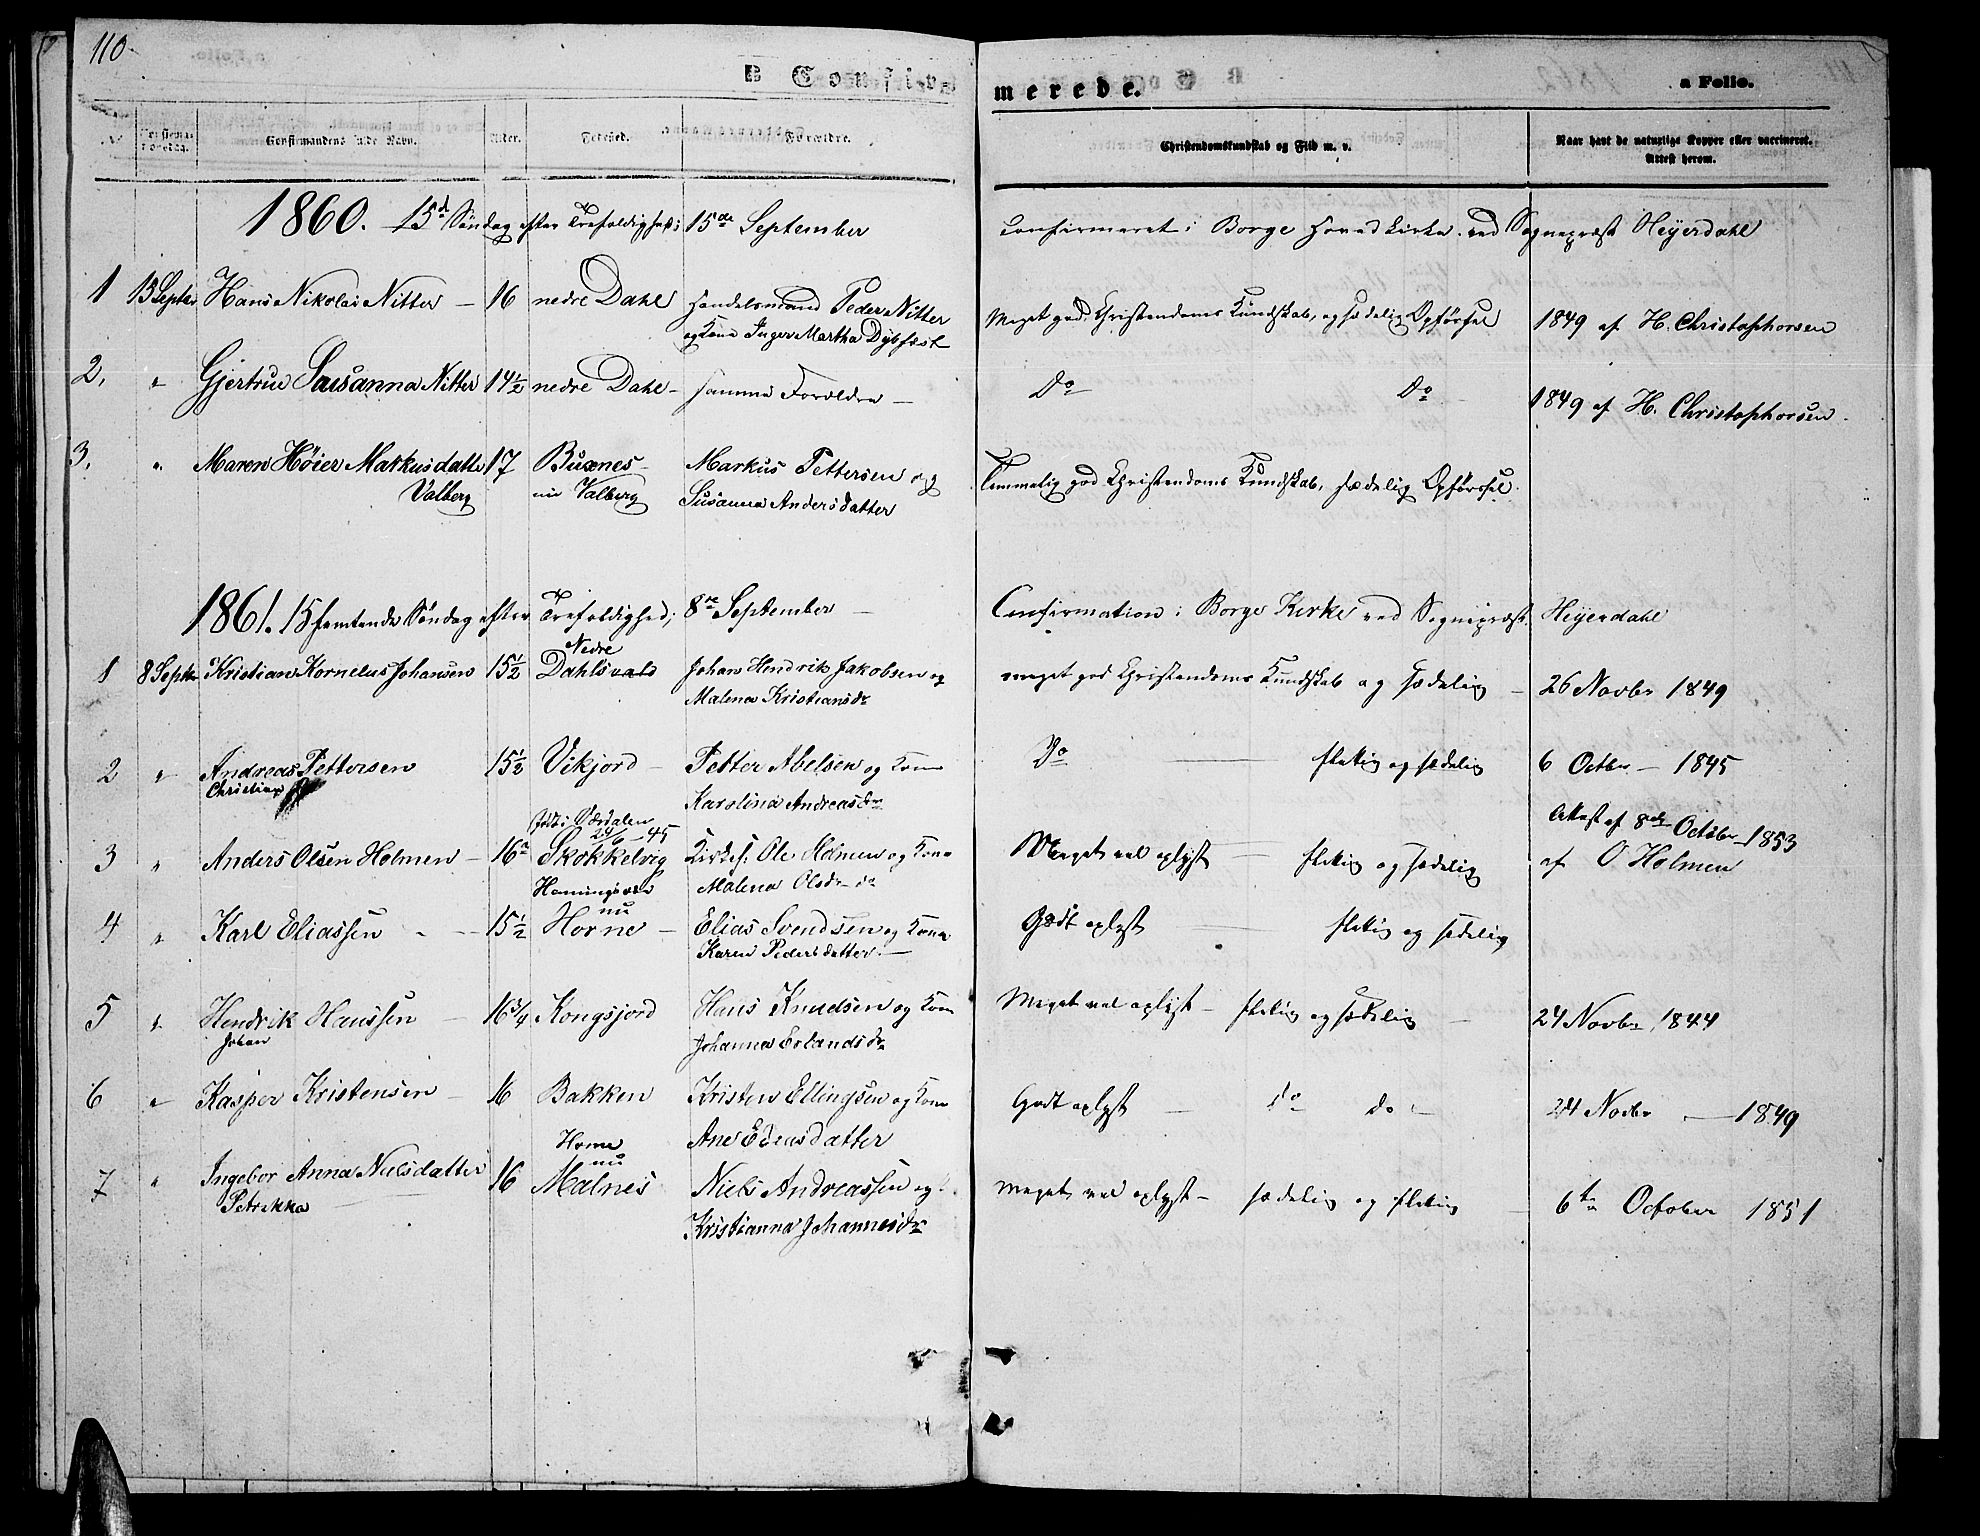 110.
B Confir
merede.
a Folio.
Confirmandens fulde Navn.
Alder.
Fødested.
Forældre.
Christendomskundskab og Flid m. v.
Naar havt de naturlige Kopper eller vaccineret.
Attest herom.
1860. 15d Søndag efter Trefoldighed; 15de September
Confirmeret i Borge Hovedkirke ved Sognepræst Heyerdahl
1 Hans Nikolai Nitter 16 nedre Dahl Handelsmand Peder Nitter
og Kone Inger Martha Dybfest
Meget god Christendoms Kundskab, og sædelig Opførsel
1849 af H. Christophorsen
2, " Gjertrue Susanna Nitter 14½ nedre Dahl samme Foreldre
Do Do
1849 af H. Christophorsen
3, " Maren Høier Markusdatter 17 Buxnes Markus Pettersen og
Valberg nu Valberg Susanna Andersdatter
Temmelig god Christendoms Kundskab, sædelig Opførsel.
1861. 15 femtende Søndag efter Trefoldighed; 8de September
Confirmation i Borge Kirke ved Sognepræst Heyerdahl
Nedre
1 8 Septbr Kristian Kornelius Johansen 15½ Dahlsvald Johan Hendrik Jakobsen og
Malena Kristiansdr
meget god Christendoms Kundskab og sædelig
26 Novbr 1849
2 " Andreas Pettersen 15½ Vikjord Petter Abelsen og Kone
Christian Karolina Andreasdr
Do flittig og sædelig
6 Octbr 1845
Født i Værdalen
24/6 45
3 " Anders Olsen Holmen 16 Skokkelvig Kirkes. Ole Holmen og Kone
Malena Olsdr
Meget vel oplyst flittig og sædelig
Attest af 8de Octobr 1853
af O Holmen
Henningsvær
nu
4 " Karl Eliassen 15½ Horne Elias Svendsen og Kone
Karen Pedersdatter
Godt oplyst flittig og sædelig
5 " Hendrik Hanssen 16¾ Kongsjord Hans Knudsen og Kone
Johan Johanna Erlandsdr
Meget vel oplyst flittig og sædelig
24 Novbr 1844
6 " Kasper Kristensen 16 Bakken Kristen Ellingsen og Kone
Ane Ediasdatter
Godt oplyst do do
24 Novbr 1849
Horne
nu
7 " Ingebor Anna Nielsdatter 16 Malnes Niels Andreassen og
Petrikka Kristianna Johannesdr
meget vel oplyst sædelig og flittig
6te October 1851